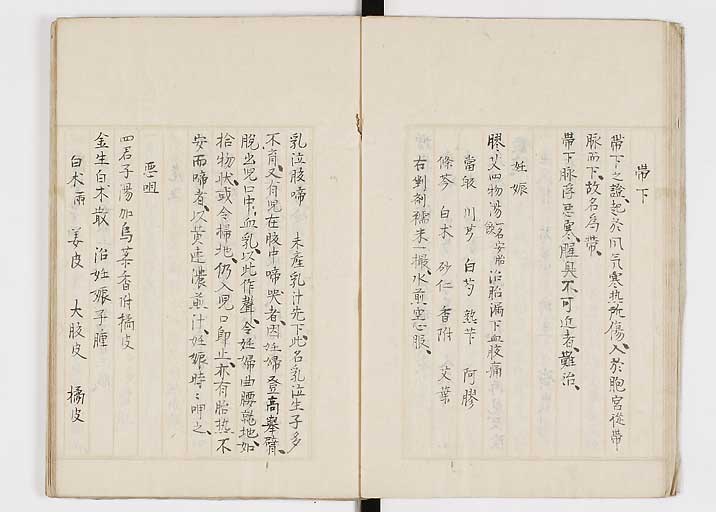 帶下
帶下之證、起於風氣寒热所傷、入於胞宮從帶
脉而下、故名為帶、
帶下脉浮惡寒腥臭不可近者、難治、
妊娠
膠艾四物湯 名安胎飲 治胎漏下血腹痛
當皈 川芎 白芍 熟芐 阿膠
條芩 白朮 砂仁 香附 艾葉
右剉劑糯米一撮、水煎空心服、
乳泣腹啼 未產乳汁先下、此名乳泣生子多
不育、又有児在腹中啼哭者、因妊婦登高舉臂、
脫出児口中血乳、以此作聲、令妊婦曲腰就地、如
拾物狀、或令掃地、仍入児口即止、亦有胎热不
安而啼者、以黄連濃煎汁、妊娠時〻呷之、
惡阻
四君子湯加烏藥香附橘皮
金生白朮散 治妊娠子腫
白朮兩 姜皮 大腹皮 橘皮